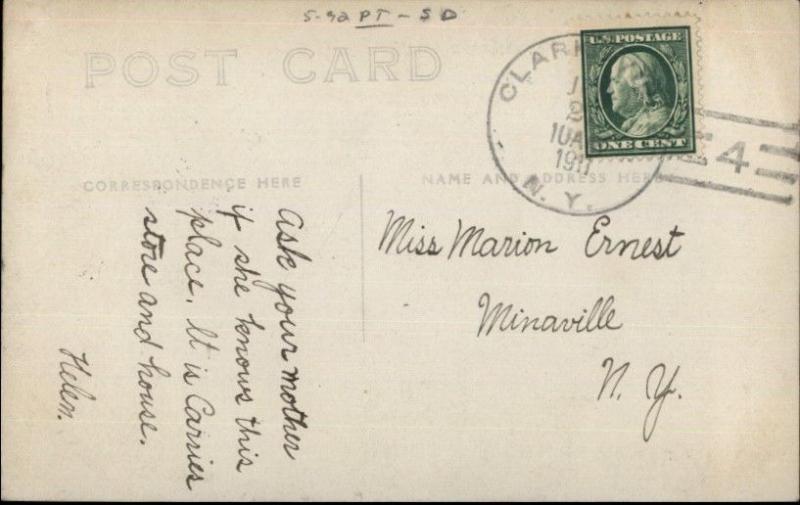 5-92 PT - SD
POST CARD
U.S. POSTAGE
ONE CENT
CLAR
10A
1911
N. Y.
4
CORRESPONDENCE HERE
NAME AND ADDRESS HERE
Ask your mother
if she knows this
place. It is Carries
store and house.
Helen.
Miss Marion Ernest
Minaville
N. Y.